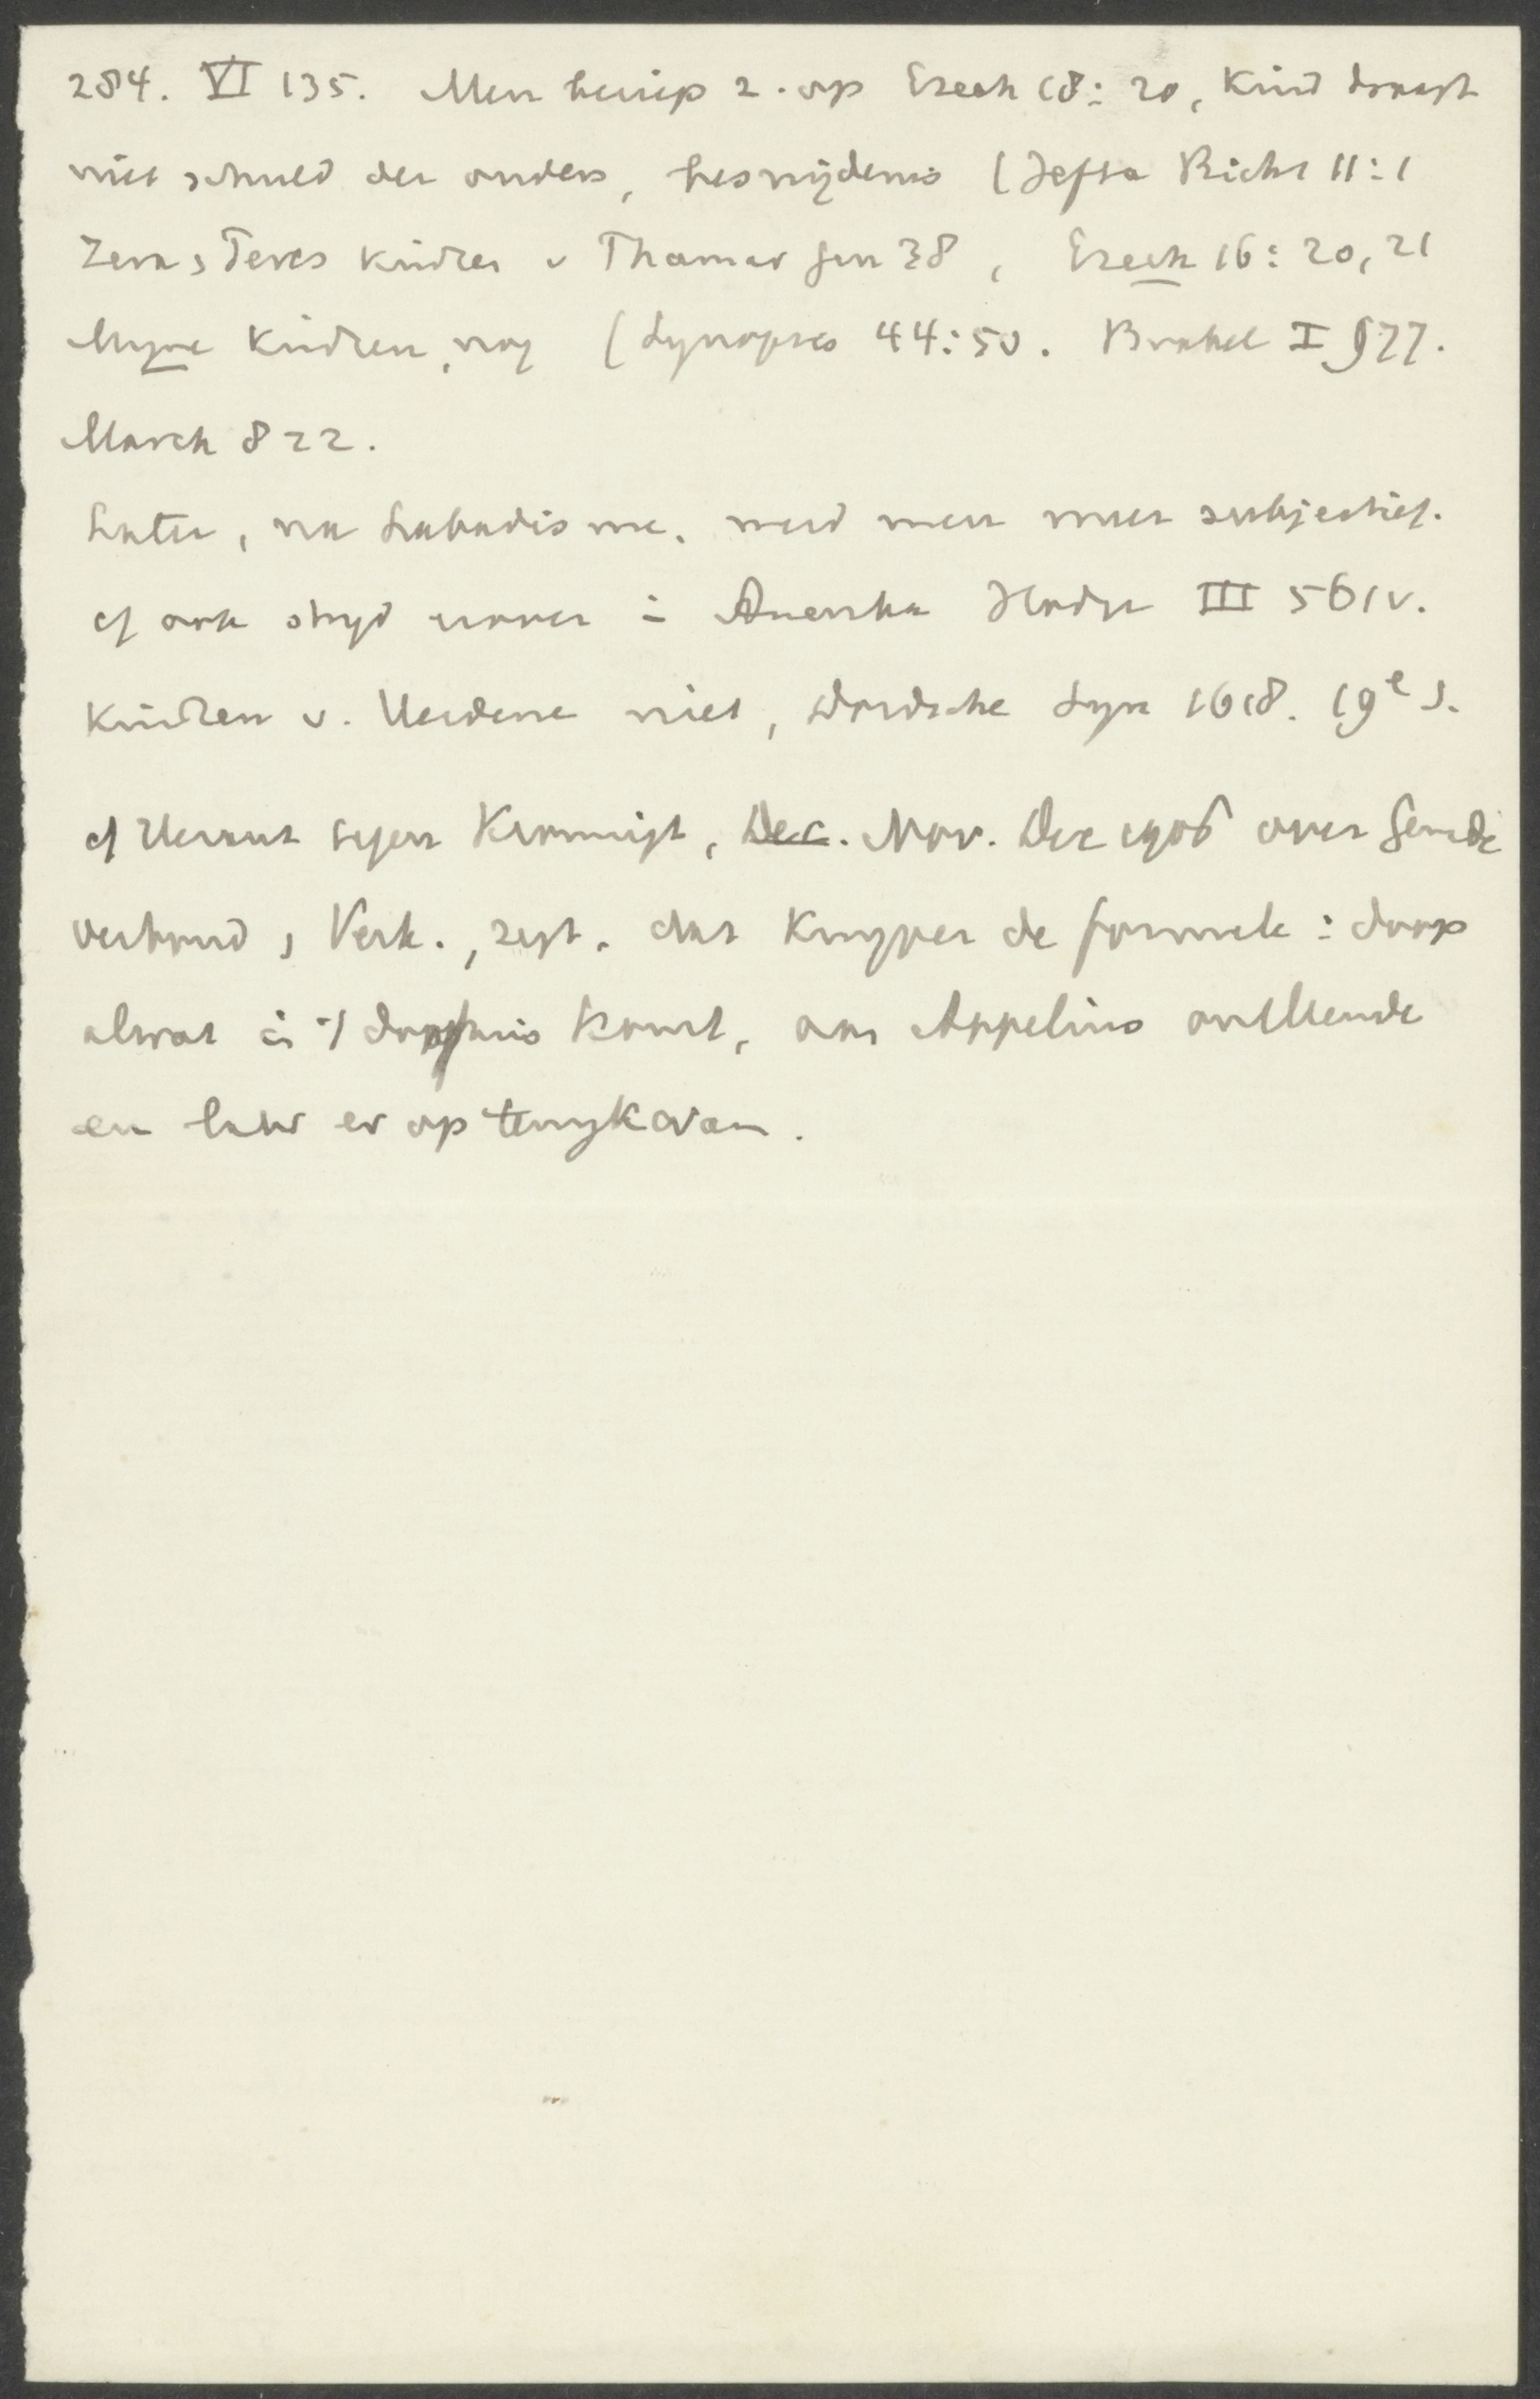 284. VI 135. Men beriep z. op Ezech 18: 20, kind draagt
niet schuld der ouders, besnijdenis (Jefta Richt 11:1
Zera, Peres kinderen v Thamar Gen 38, Ezech 16: 20, 21
Myne kinderen, (Synopsis 44:50. Brakel I §77.
March 822.
Later, na Labadisme. werd men meer subjectief.
cf ook stryd erover in Amerika Hodge III 561v.
Kinderen v. Heidenen niet, Dordsche Syn 1618. 19e s.
cf Heraut tegen Kromsigt, Dec. Nov. Dec 1906 over Genade
verbond, Kerk., zegt, dat Kuyper de formule: doop
alwat in 't doophuis komt, aan Appelius ontleende
en later er op terugkwam.